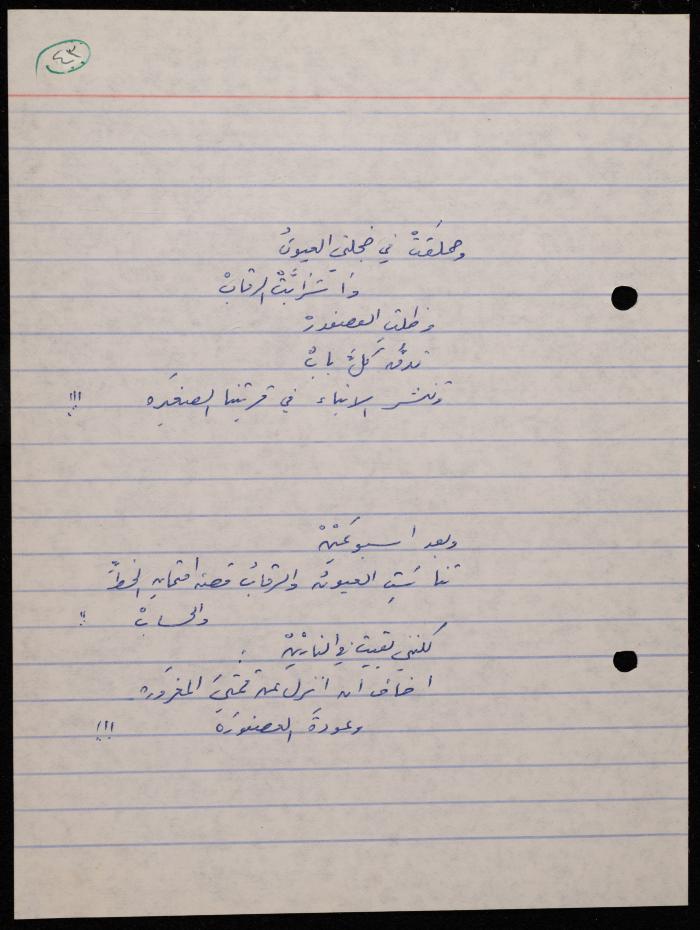 ٤٣
وحملقَتْ في خجلتي العيونُ
واشرَأبَّتْ الرقابْ
وظلتِ العصفورة
تدقُّ كلَّ بابْ
وتنشر الانباء في قريتنا الصغيَره !!!
وبعد اسبوعَيْنْ
تناسَتِ العيونُ والرقابُ قصة امتحانِ الخطِّ
والحسابْ !!
لكنني بقيت في النارَيْنْ :
اخاف ان انزل عن قمتيَ المغرورة
وعودةَ العصفورَة !!!